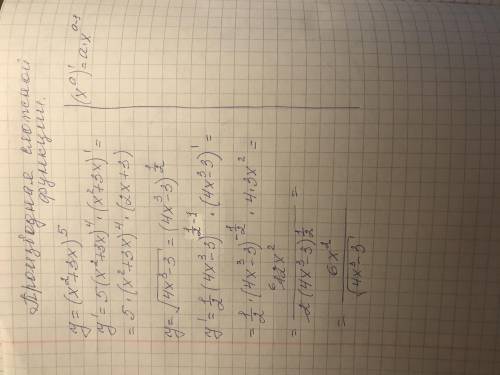 Производная сложной
функции.
(x^a)' = a·x^(a-1)
y = (x²+3x)^5
y' = 5(x²+3x)^4 · (x²+3x)' =
= 5·(x²+3x)^4 · (2x+3)
y = √(4x³-3) = (4x³-3)^(1/2)
y' = 1/2 (4x³-3)^(1/2-1) · (4x³-3)' =
= 1/2 · (4x³-3)^(-1/2) · 4·3x² =
= 6 12x² / 2(4x³-3)^(1/2) =
= 6x² / √(4x³-3)